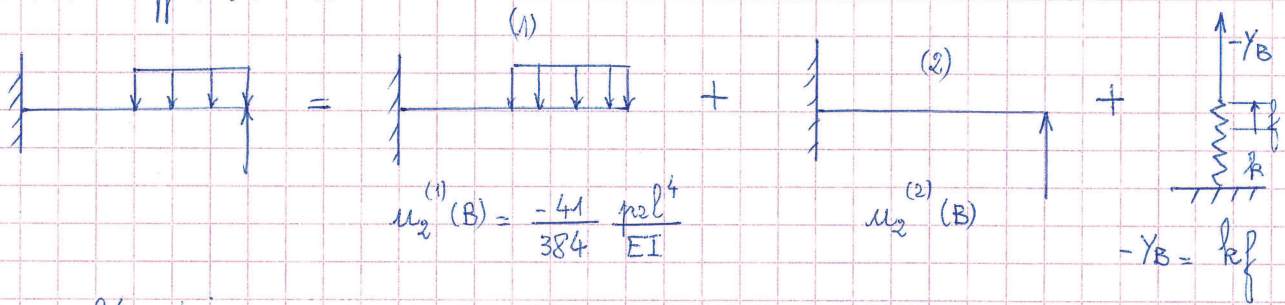 (1)
(2)
-Y_B
=
+
+
f
k
u_2^{(1)}(B) = \frac{-41}{384} \frac{p_2 l^4}{EI}
u_2^{(2)}(B)
-Y_B = kf